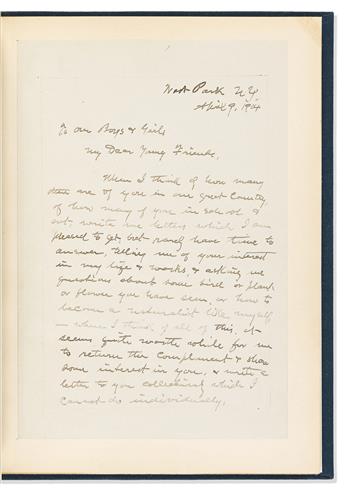 West Park N.Y.
April 9, 1914
To our Boys & Girls
My Dear Young Friends,
When I think of how many
there are of you in our great Country,
of how many of you in school &
out write me letters which I am
pleased to get, but rarely have time to
answer, telling me of your interest
in my life & works, & asking me
questions about some bird or plant
or flower you have seen, or how to
become a naturalist like myself
— when I think of all of this, it
seems quite worth while for me
to return the compliment & show
some interest in you, & write a
letter to you collectively which I
cannot do individually.